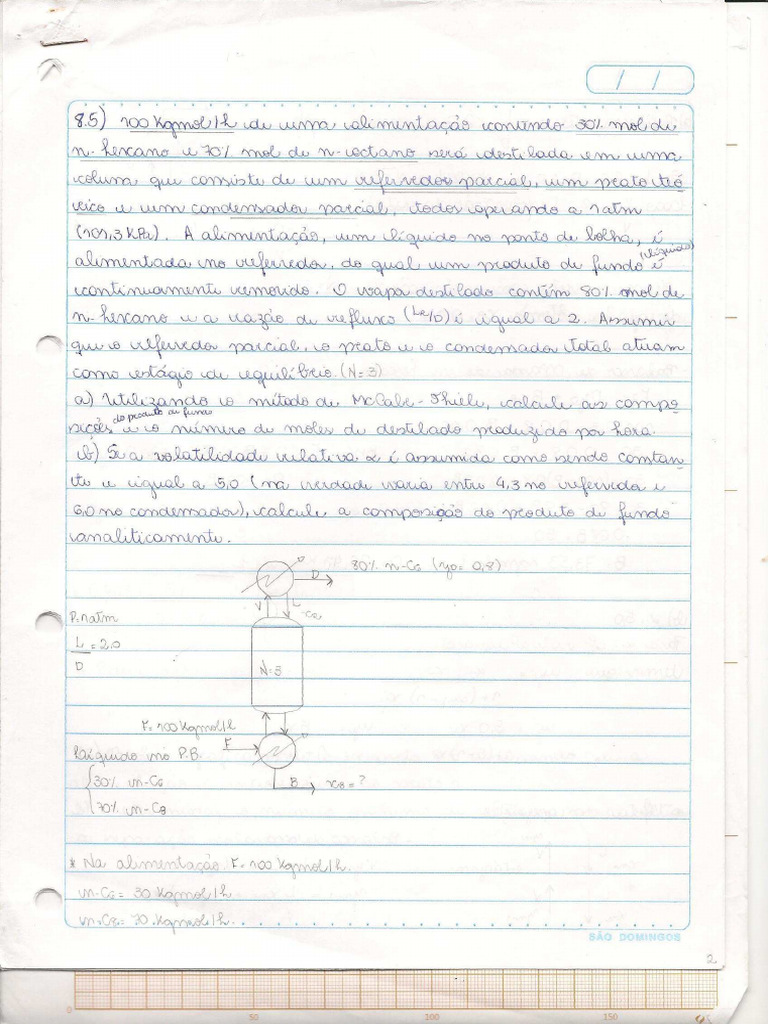 / /
8.5) 100 Kgmol/h de uma alimentação contendo 30% mol de
n-hexano e 70% mol de n-octano será destilada em uma
coluna que consiste de um refervedor parcial, um prato teó
rico e um condensador parcial, todos operando a 1 atm
(101,3 KPa). A alimentação, um líquido no ponto de bolha, é
alimentada no refervedor, do qual um produto de fundo (líquido) é
continuamente removido. O vapor destilado contém 80% mol de
n-hexano e a razão de refluxo (LR/D) é igual a 2. Assumir
que o refervedor parcial, o prato e o condensador total atuam
como estágio de equilíbrio. (N=3)
a) Utilizando o método de McCabe-Thiele, calcule as compo
sições do produto de fundo e o número de moles de destilado produzido por hora.
b) Se a volatilidade relativa α é assumida como sendo constan
te e igual a 5,0 (na verdade varia entre 4,3 no refervedor e
6,0 no condensador), calcule a composição do produto de fundo
analiticamente.
D 80% n-C6 (yD = 0,8)
V L
P=1atm
L = 2,0
D
N=3
F=100 Kgmol/h
F
Líquido no P.B.
B xB = ?
30% n-C6
70% n-C8
* Na alimentação F=100 Kgmol/h.
n-C6 = 30 Kgmol/h
n-C8 = 70 Kgmol/h
SÃO DOMINGOS
2
0 50 100 150